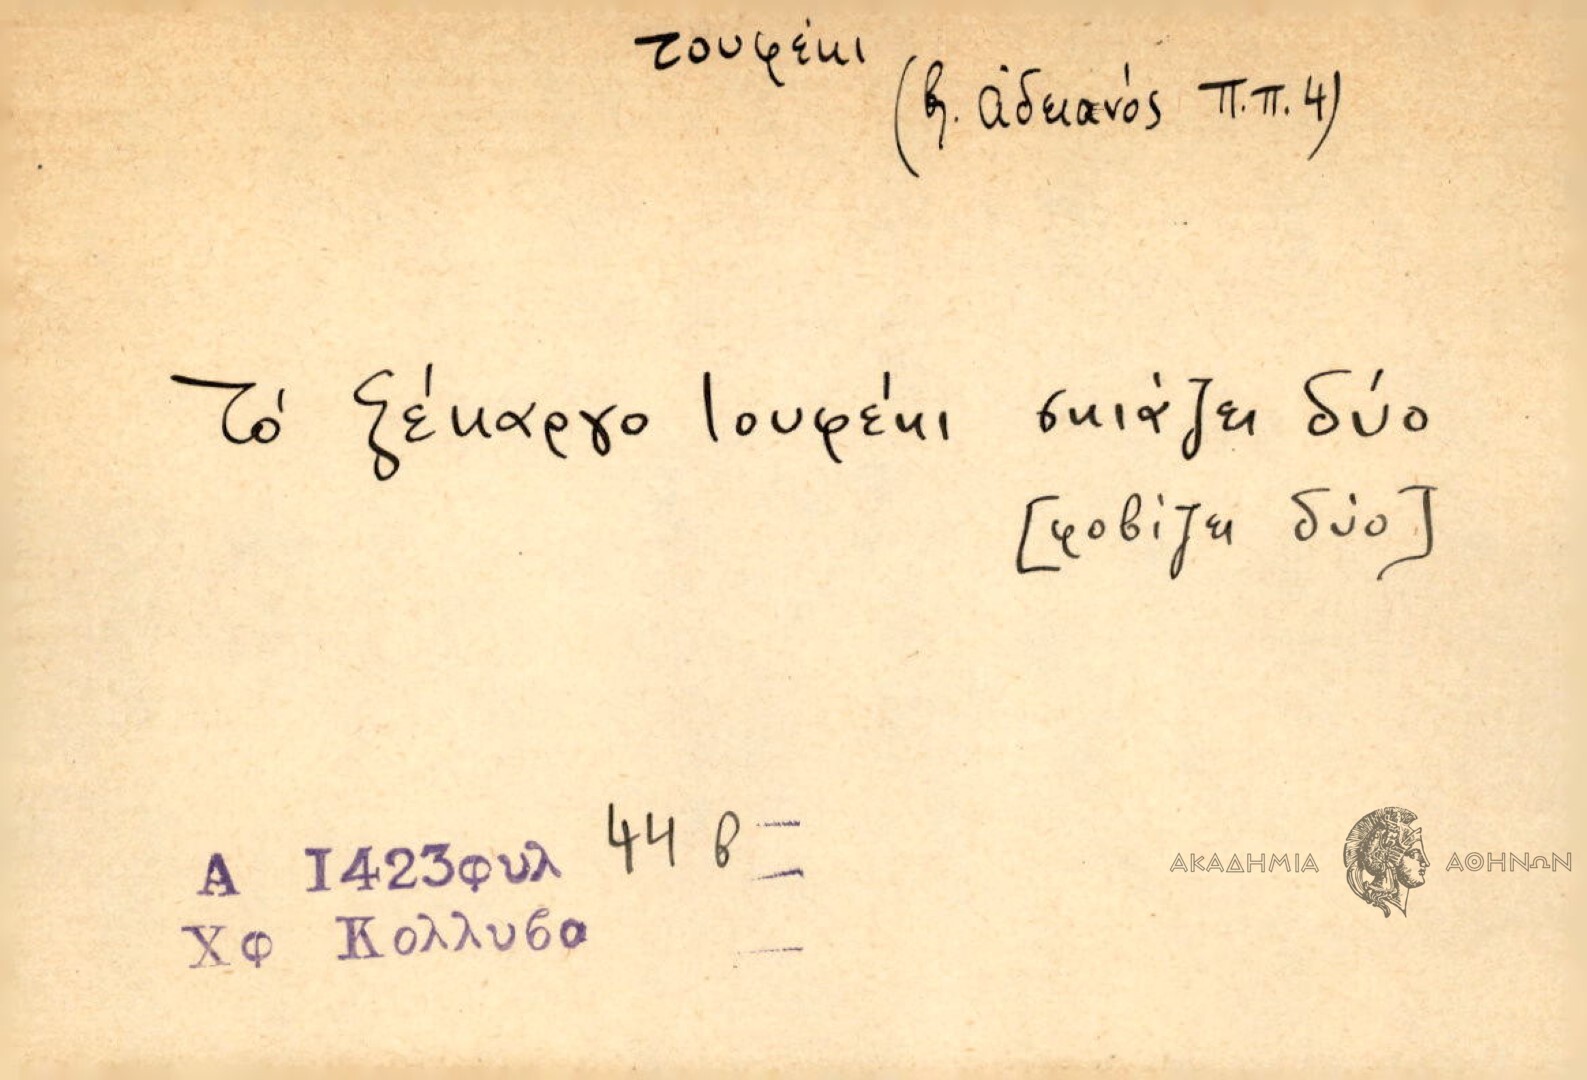 τουφέκι
(β. ἀδειανός Π.Π. 4)
Τό ξέκαργο τουφέκι σκιάζει δύο
[φοβίζει δύο]
Α 1423φυλ 44 β
Χφ Κολλυβα
ΑΚΑΔΗΜΙΑ ΑΘΗΝΩΝ